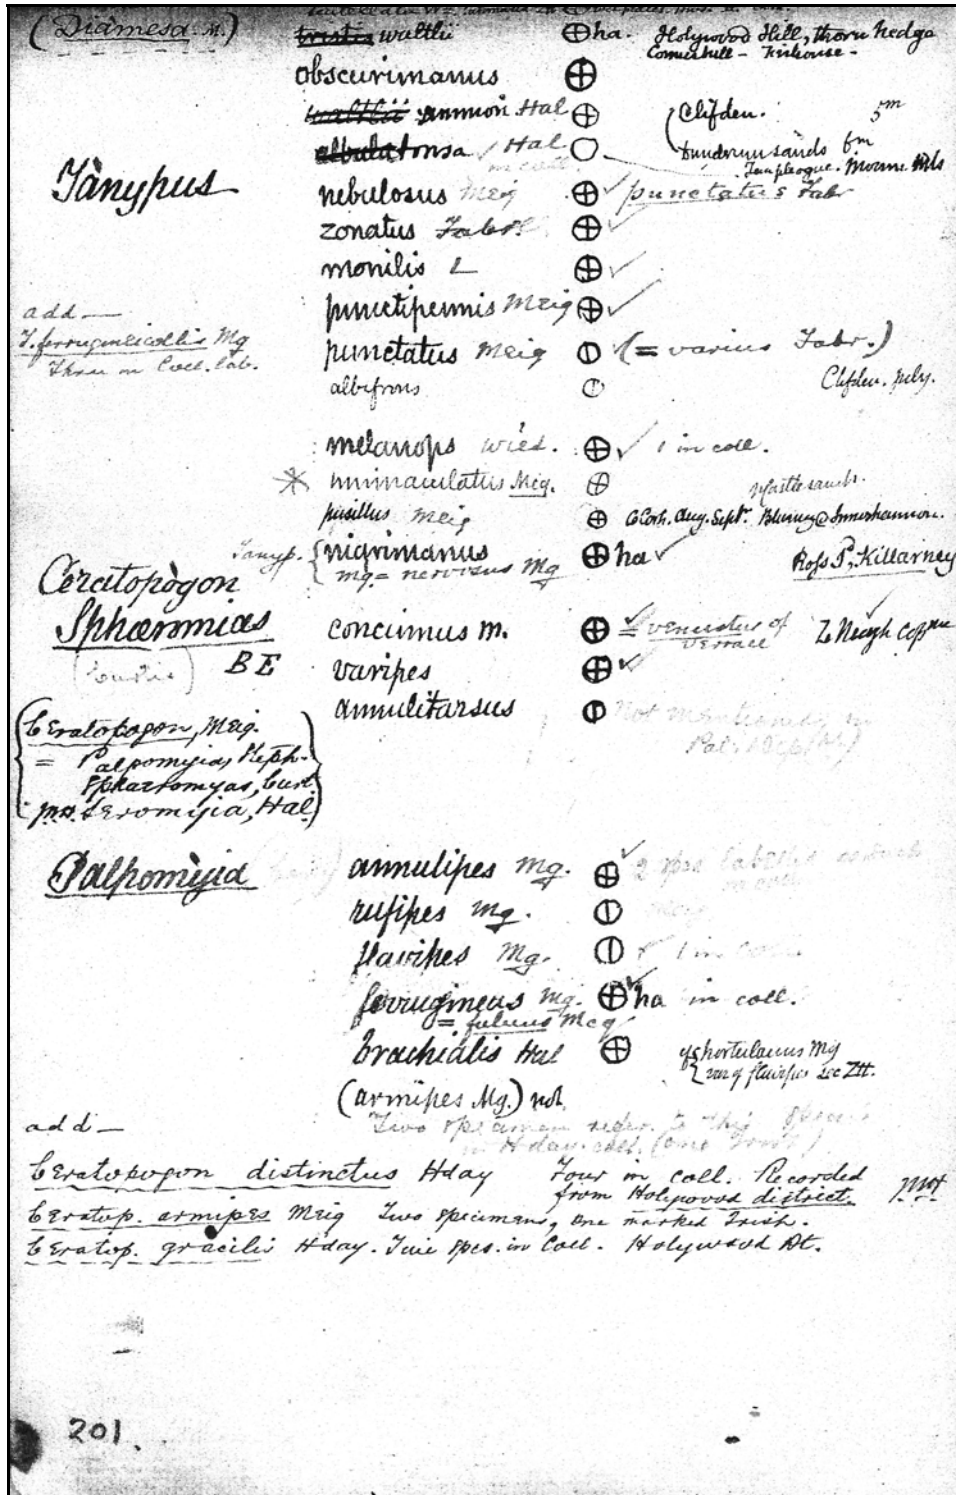 (Diamesa. M.) tristis waltlii ⊕ ha. Holywood Hill, thorn hedge
obscurimanus ⊕
waltlii Hal ⊕ Clifden. 5m
albula tonsa Hal ○ Dundrum sands 6m
in coll. Templeogue. Mourne Mts
Tànypus
nebulosus Meig ⊕ ✓ punctatus Fabr
zonatus Fabr. ⊕ ✓
monilis L ⊕ ✓
punctipennis Meig ⊕ ✓
add —
T. ferrugineicollis Mg
Three in Coll. lab.
punctatus Meig ⦶ ✓ (= varius Fabr.)
albifrons ⦶ Clifden. July.
melanops Wied. ⊕ ✓ 1 in coll.
immaculatus Meig. ⊕
pusillus Meig ⊕ Co Cork. Aug. Sept.
Tanyp. { nigrimanus ⊕ ha ✓ Ross I, Killarney
Mg. = nervosus Mg
Ceratopògon
Sphæromias
(Curtis) BE
concinnus m. ⊕ ✓ = venustus of L Neagh
Verrall
varipes ⊕ ✓
annulitarsus ⦶ Not mentioned in
Ceratopogon, Meig.
= Palpomyia, Steph.
Sphæromyas, Curt.
Seromyia, Hal.
Palpomỳia
annulipes Mg. ⊕ ✓ 2 in coll.
rufipes Mg. ⦶
flavipes Mg. ⦶ ✓ 1 in coll.
ferrugineus Mg. ⊕ ✓ ha in coll.
= fulvus Meg
brachialis Hal ⊕ hortulanus Mg
var of flavipes sec Ztt.
(armipes Mg.) not
Two specimen refer. to this
in Hday. coll. (one Irish)
add —
Ceratopogon distinctus Hday Four in coll. Recorded
from Holywood district.
Ceratop. armipes Meig Two specimens, one marked Irish.
Ceratop. gracilis Hday. spcs. in Coll. Holywood Dt.
201.